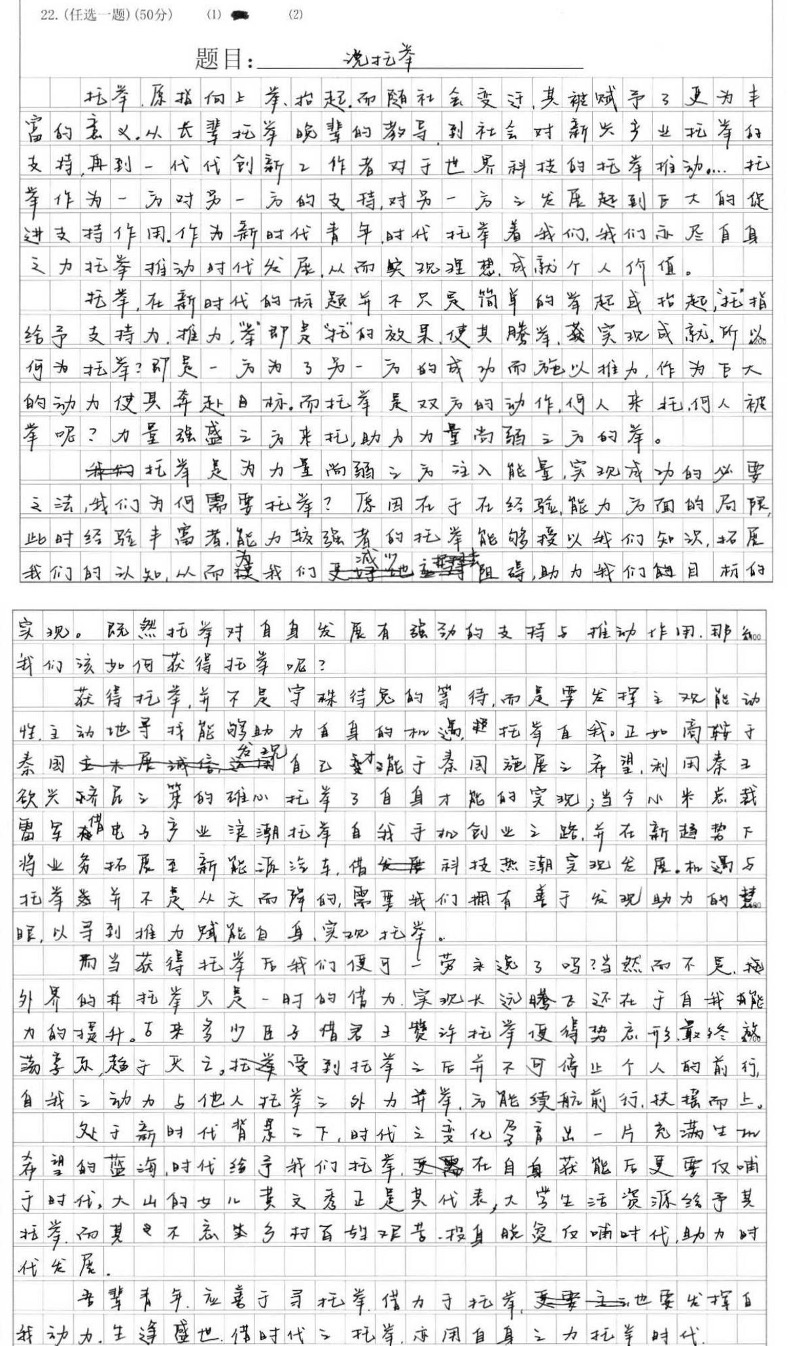 22.(任选一题)(50分) (1) (2)
题目: 说托举
托举,原指向上举,抬起,而随社会变迁,其被赋予了更为丰
富的意义,从长辈托举晚辈的教导,到社会对新兴产业托举的
支持,再到一代代创新工作者对于世界科技的托举推动……托
举作为一方对另一方的支持,对另一方之发展起到巨大的促
进支持作用。作为新时代青年,时代托举着我们,我们亦尽自身
之力托举推动时代发展,从而实现理想,成就个人价值。
托举,在新时代的标题并不只是简单的举起或抬起,"托"指
给予支持力,推力,"举"即是"托"的效果,使其腾举,实现成就,所以
何为托举?即是一方为了另一方的成功而施以推力,作为巨大
的动力使其奔赴目标。而托举是双方的动作,何人来托,何人被
举呢?力量强盛之方来托,助力力量尚弱之方的举。
托举是为力量尚弱之方注入能量,实现成功的必要
之法,我们为何需要托举?原因在于在经验,能力方面的局限,
此时经验丰富者,能力较强者的托举能够授以我们知识,拓展
我们的认知,从而为我们减少阻碍,助力我们的目标的
实现。既然托举对自身发展有强劲的支持与推动作用,那么
我们该如何获得托举呢?
获得托举,并不是守株待兔的等待,而是要发挥主观能动
性,主动地寻找能够助力自身的机遇,托举自我。正如商鞅于
秦国发现自己才能于秦国施展之希望,利用秦王
欲兴之策的雄心托举了自身才能的实现;当今小米总裁
雷军借电子产业浪潮托举自我手机创业之路,并在新趋势下
将业务拓展至新能源汽车,借科技热潮实现发展。机遇与
托举并不是从天而降的,需要我们拥有善于发现助力的慧
眼,以寻到推力赋能自身,实现托举。
而当获得托举后我们便可一劳永逸了吗?当然而不是,
外界的托举只是一时的借力,实现长远腾飞还在于自我能
力的提升。古来多少臣子借君王赞许托举便得势忘形,最终
荡享乐,趋于灭亡。受到托举之后并不可停止个人的前行,
自我之动力与他人托举之外力并举,方能续航前行,扶摇而上。
处于新时代背景之下,时代之变化孕育出一片充满生机
希望的蓝海,时代给予我们托举,在自身获能后更要反哺
于时代,大山的女儿黄文秀正是其代表,大学生活资源给予其
托举,而其不忘生乡村百姓艰苦,投身脱贫反哺时代,助力时
代发展。
吾辈青年,应善于寻托举,借力于托举,也要发挥自
我动力,生逢盛世,借时代之托举,亦用自身之力托举时代.